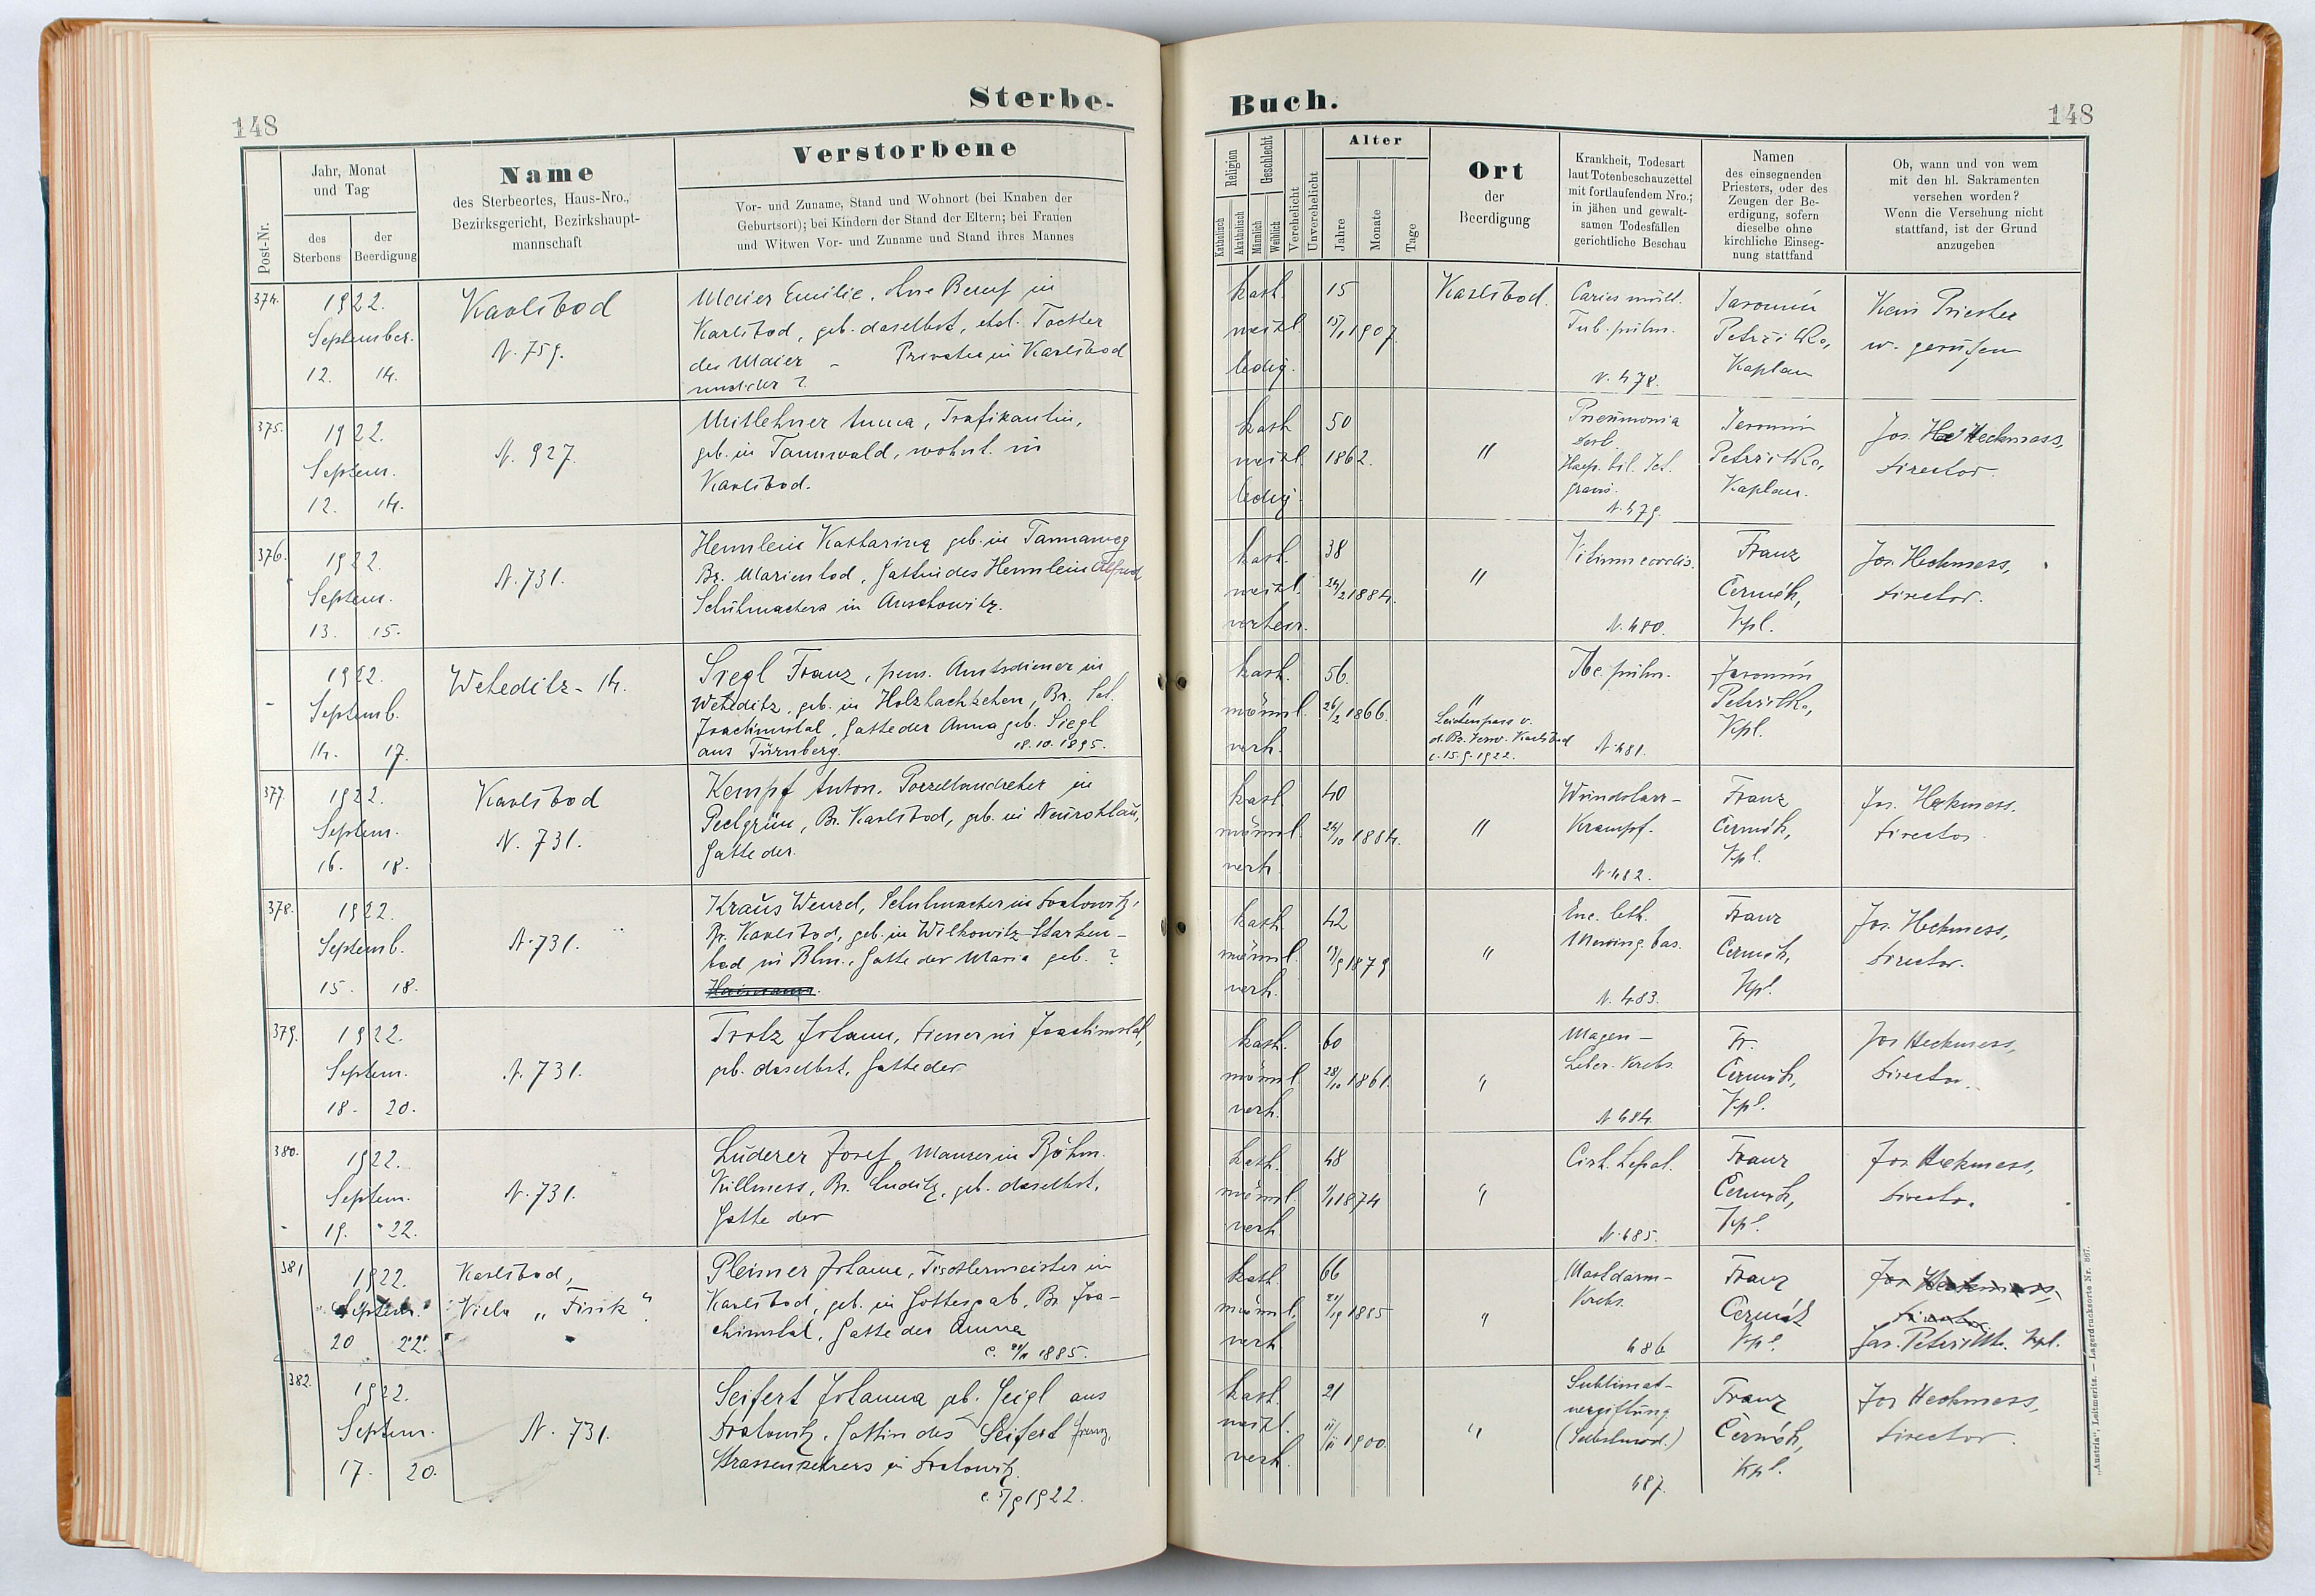 148
Sterbe-
Post-Nr.
Jahr, Monat
und Tag
des
Sterbens
der
Beerdigung
Name
des Sterbeortes, Haus-Nro.,
Bezirksgericht, Bezirkshaupt-
mannschaft
Verstorbene
Vor- und Zuname, Stand und Wohnort (bei Knaben der
Geburtsort); bei Kindern der Stand der Eltern; bei Frauen
und Witwen Vor- und Zuname und Stand ihres Mannes
374.
1922.
September.
12. 14.
Karlsbad
N. 759.
Maier Emilie, ohne Beruf in
Karlsbad, geb. daselbst, ehel. Tochter
des Maier – Privatier in Karlsbad
und der ?
375.
1922.
Septem.
12. 14.
N. 927.
Mitlehner Anna, Trafikantin,
geb. in Tannwald, wohnh. in
Karlsbad.
376.
1922.
Septem.
13. 15.
N. 731.
Hennlein Katharina geb. in Tannaweg
Bz. Marienbad, Gattin des Hennlein Alfred
Schuhmachers in Auschowitz.
–
1922.
Septemb.
14. 17.
Weheditz - 14.
Siegl Franz, pens. Amtsdiener in
Weheditz, geb. in Holzbachzehen, Bz. Sct.
Joachimstal, Gatte der Anna geb. Siegl
aus Türnberg. 18.10.1895.
377.
1922.
Septem.
16. 18.
Karlsbad
N. 731.
Kempf Anton, Porzellandreher in
Pechgrün, Bz. Karlsbad, geb. in Neurohlau,
Gatte der.
378.
1922.
Septemb.
15. 18.
N. 731.
Kraus Wenzel, Schuhmacher in Drahowitz,
Bz. Karlsbad, geb. in Wilkowitz Starken-
bad in Bhm., Gatte der Maria geb. ?
379.
1922.
Septem.
18. 20.
N. 731.
Trotz Johann, Diener in Joachimstal,
geb. daselbst, Gatte der
380.
1922.
Septem.
19. 22.
N. 731.
Luderer Josef, Maurer in Böhm.
Killmess, Bz. Luditz, geb. daselbst,
Gatte der
381
1922.
Septem.
20 22.
Karlsbad,
Villa „Fisik“.
Pleimer Johann, Tischlermeister in
Karlsbad, geb. in Gottesgab, Bz. Joa-
chimstal, Gatte der Anna
1885.
382.
1922.
Septem.
17. 20.
N. 731.
Seifert Johanna geb. Geigl aus
Drahowitz, Gattin des Seifert Franz,
Strassenkehrers in Drahowitz.
c. 5/9 1922.
Buch.
148
Religion
Katholisch
Akatholisch
Geschlecht
Männlich
Weiblich
Verehelicht
Unverehelicht
Alter
Jahre
Monate
Tage
Ort
der
Beerdigung
Krankheit, Todesart
laut Totenbeschauzettel
mit fortlaufendem Nro.;
in jähen und gewalt-
samen Todesfällen
gerichtliche Beschau
Namen
des einsegnenden
Priesters, oder des
Zeugen der Be-
erdigung, sofern
dieselbe ohne
kirchliche Einseg-
nung stattfand
Ob, wann und von wem
mit den hl. Sakramenten
versehen worden?
Wenn die Versehung nicht
stattfand, ist der Grund
anzugeben
kath.
weibl.
ledig.
15
15/1 1907.
Karlsbad.
Caries mult.
Tub. pulm.
N. 478.
Jaromin
Petržilka,
Kaplan
Kein Priester
w. gerufen
kath
weibl.
ledig.
50
1862.
"
Pneumonia
N. 479.
Jaromin
Petržilka,
Kaplan.
Jos. Heckmess,
Director.
kath.
weibl.
verheir.
38
24/2 1884.
"
Vitium cordis.
N. 480.
Franz
Čermák,
Kpl.
Jos. Heckmess,
Director.
kath.
männl.
verh.
56.
26/2 1866.
"
Leichenpass v.
d. Bz. Verw. Karlsbad
c. 15.9.1922.
Tbc. pulm.
N. 481.
Jaromin
Petržilka,
Kpl.
kath.
männl.
verh.
40
24/10 1884.
"
Wundstarr-
Krampf.
N. 482.
Franz
Čermák,
Kpl.
Jos. Heckmess.
Director
kath.
männl.
verh.
42
19/9 1879
"
Enc. leth.
Mening. bas.
N. 483.
Franz
Čermák,
Kpl.
Jos. Heckmess,
Director.
kath.
männl.
verh.
60
28/10 1861.
"
Magen –
Leber-Krebs.
N. 484.
Fr.
Čermák,
Kpl.
Jos Heckmess,
Director.
kath.
männl.
verh.
48
1/1 1874
"
Cirh. hepat.
N. 485.
Franz
Čermák,
Kpl.
Jos. Heckmess,
Director.
kath.
männl.
verh.
66
1885
"
Mastdarm-
Krebs.
486
Franz
Čermák
Kpl.
Jos. Heckmess,
Director
Jar. Petržilka, Kpl.
kath.
weibl.
verh.
21
11/11 1900
"
Sublimat-
vergiftung
(Selbstmord.)
487.
Franz
Čermák,
Kpl.
Jos Heckmess,
Director.
„Austria“, Leitmeritz. — Lagerdrucksorte Nr. 667.